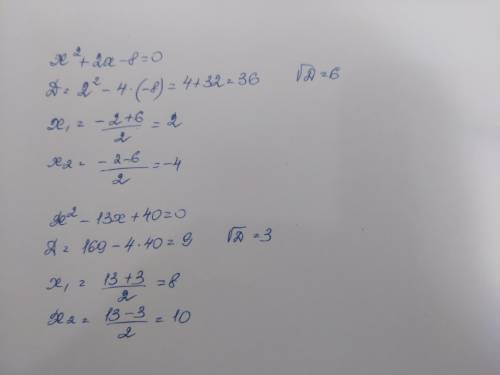 x² + 2x - 8 = 0
D = 2² - 4 · (-8) = 4 + 32 = 36 √D = 6
x₁ = (-2 + 6)/2 = 2
x₂ = (-2 - 6)/2 = -4
x² - 13x + 40 = 0
D = 169 - 4 · 40 = 9 √D = 3
x₁ = (13 + 3)/2 = 8
x₂ = (13 - 3)/2 = 10